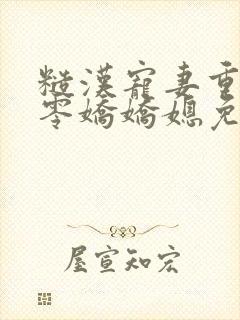 糙漢寵妻重
零嬌嬌媳免
屋宣知宏